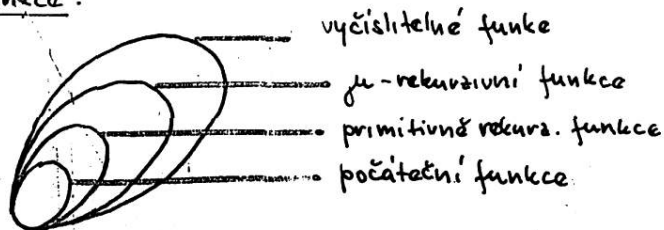 vyčíslitelné funke
μ-rekurzivní funkce
primitivně rekurz. funkce
počáteční funkce